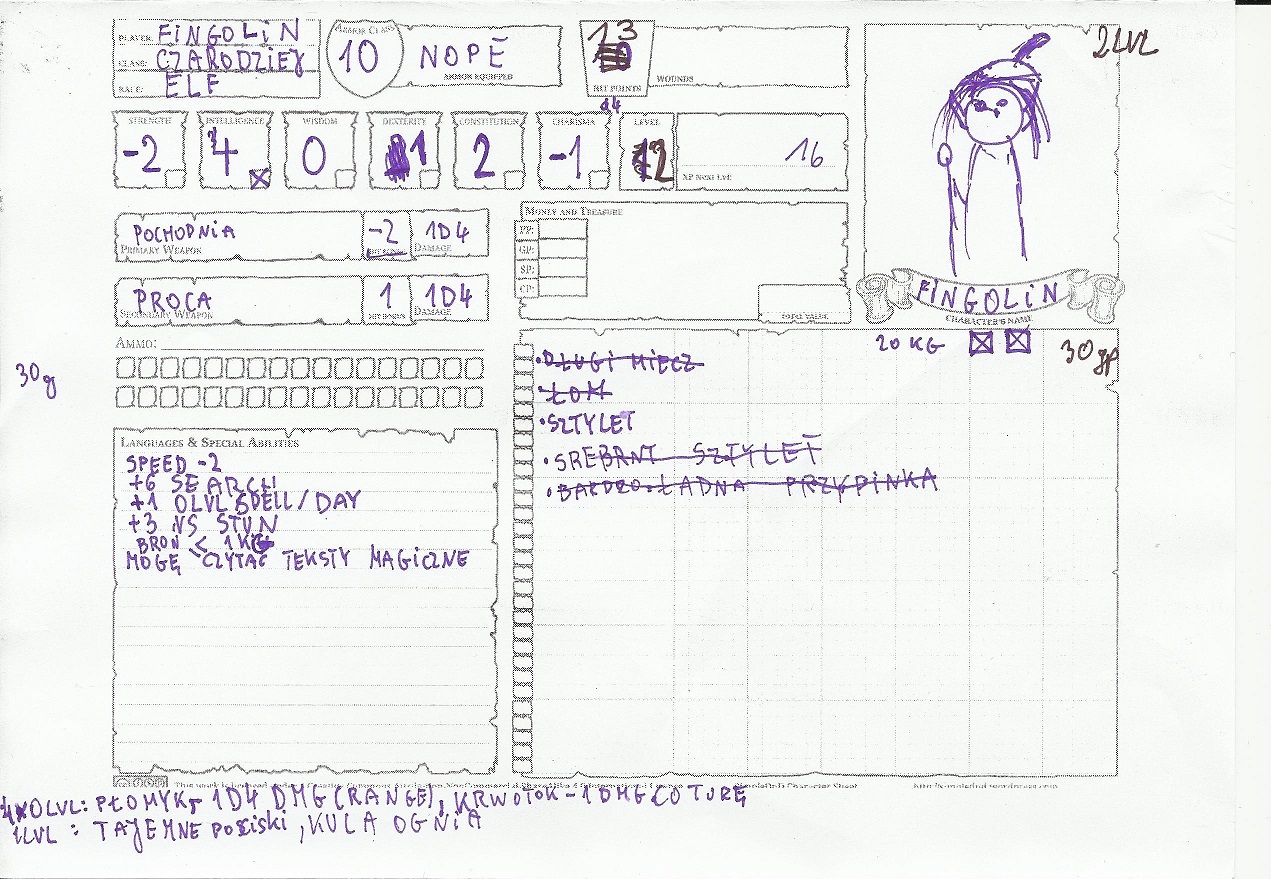 PLAYER: FiNGOLiN
CLASS: CZARODZIEJ
RACE: ELF
ARMOR CLASS
10
NOPE
ARMOR EQUIPPED
13
HIT POINTS
d4
WOUNDS
2LVL
STRENGTH INTELLIGENCE WISDOM DEXTERITY CONSTITUTION CHARISMA LEVEL
-2 4 0 1 2 -1 2
16
XP NEXT LVL:
POCHODNiA -2 1D4
PRIMARY WEAPON HIT BONUS DAMAGE
PROCA 1 1D4
SECONDARY WEAPON HIT BONUS DAMAGE
MONEY AND TREASURE
PP:
GP:
SP:
CP:
TOTAL VALUE
FiNGOLiN
CHARACTER'S NAME
AMMO:
30g
20 KG
30gp
•DŁUGi MiECZ
•ŁOM
•SZTYLET
•SREBRNY SZTYLET
•BARDZO ŁADNA PRZYPiNKA
LANGUAGES & SPECIAL ABILITIES
SPEED -2
+6 SEARCH
+1 0LVL SPELL/DAY
+3 VS STUN
BROŃ < 1KG
MOGĘ CZYTAĆ TEKSTY MAGiCZNE
http://simplednd.wordpress.com
4x0LVL: PŁOMYK, 1D4 DMG (RANGE), KRWOTOK -1DMG CO TURĘ
1LVL : TAJEMNE POCiSKi, KULA OGNiA